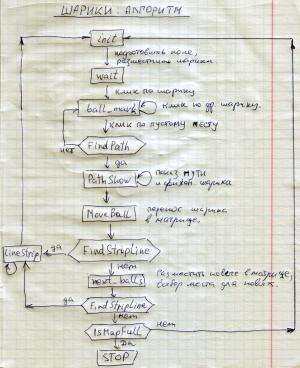 ШАРИКИ: АЛГОРИТМ
init
подготовить поле,
разместить шарики
wait
клик по шарику
ball_mark
клик по др шарику.
клик по пустому месту
FindPath
нет
да
PathShow
показ пути
и движ. шарика
MoveBall
перенос шарика
в матрице.
FindStripLine
да
LineStrip
нет
next_balls
Разместить новые в матрице,
выбор места для новых.
FindStripLine
да
нет
IsMapFull
нет
да
STOP